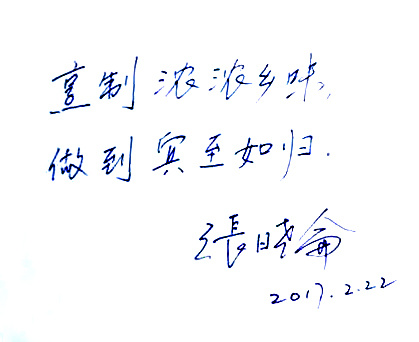 烹制浓浓乡味，
做到宾至如归.
張晓侖
2017.2.22